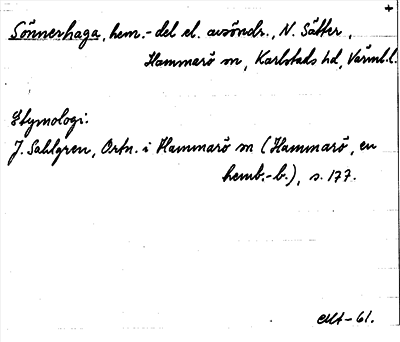 +
Sönnerhaga, hem.-del el. avsöndr., N. Sätter,
Hammarö sn, Karlstads hd, Värml. l.
Etymologi:
J. Sahlgren, Ortn. i Hammarö sn (Hammarö, en
hemb.-b.), s. 177.
-61.